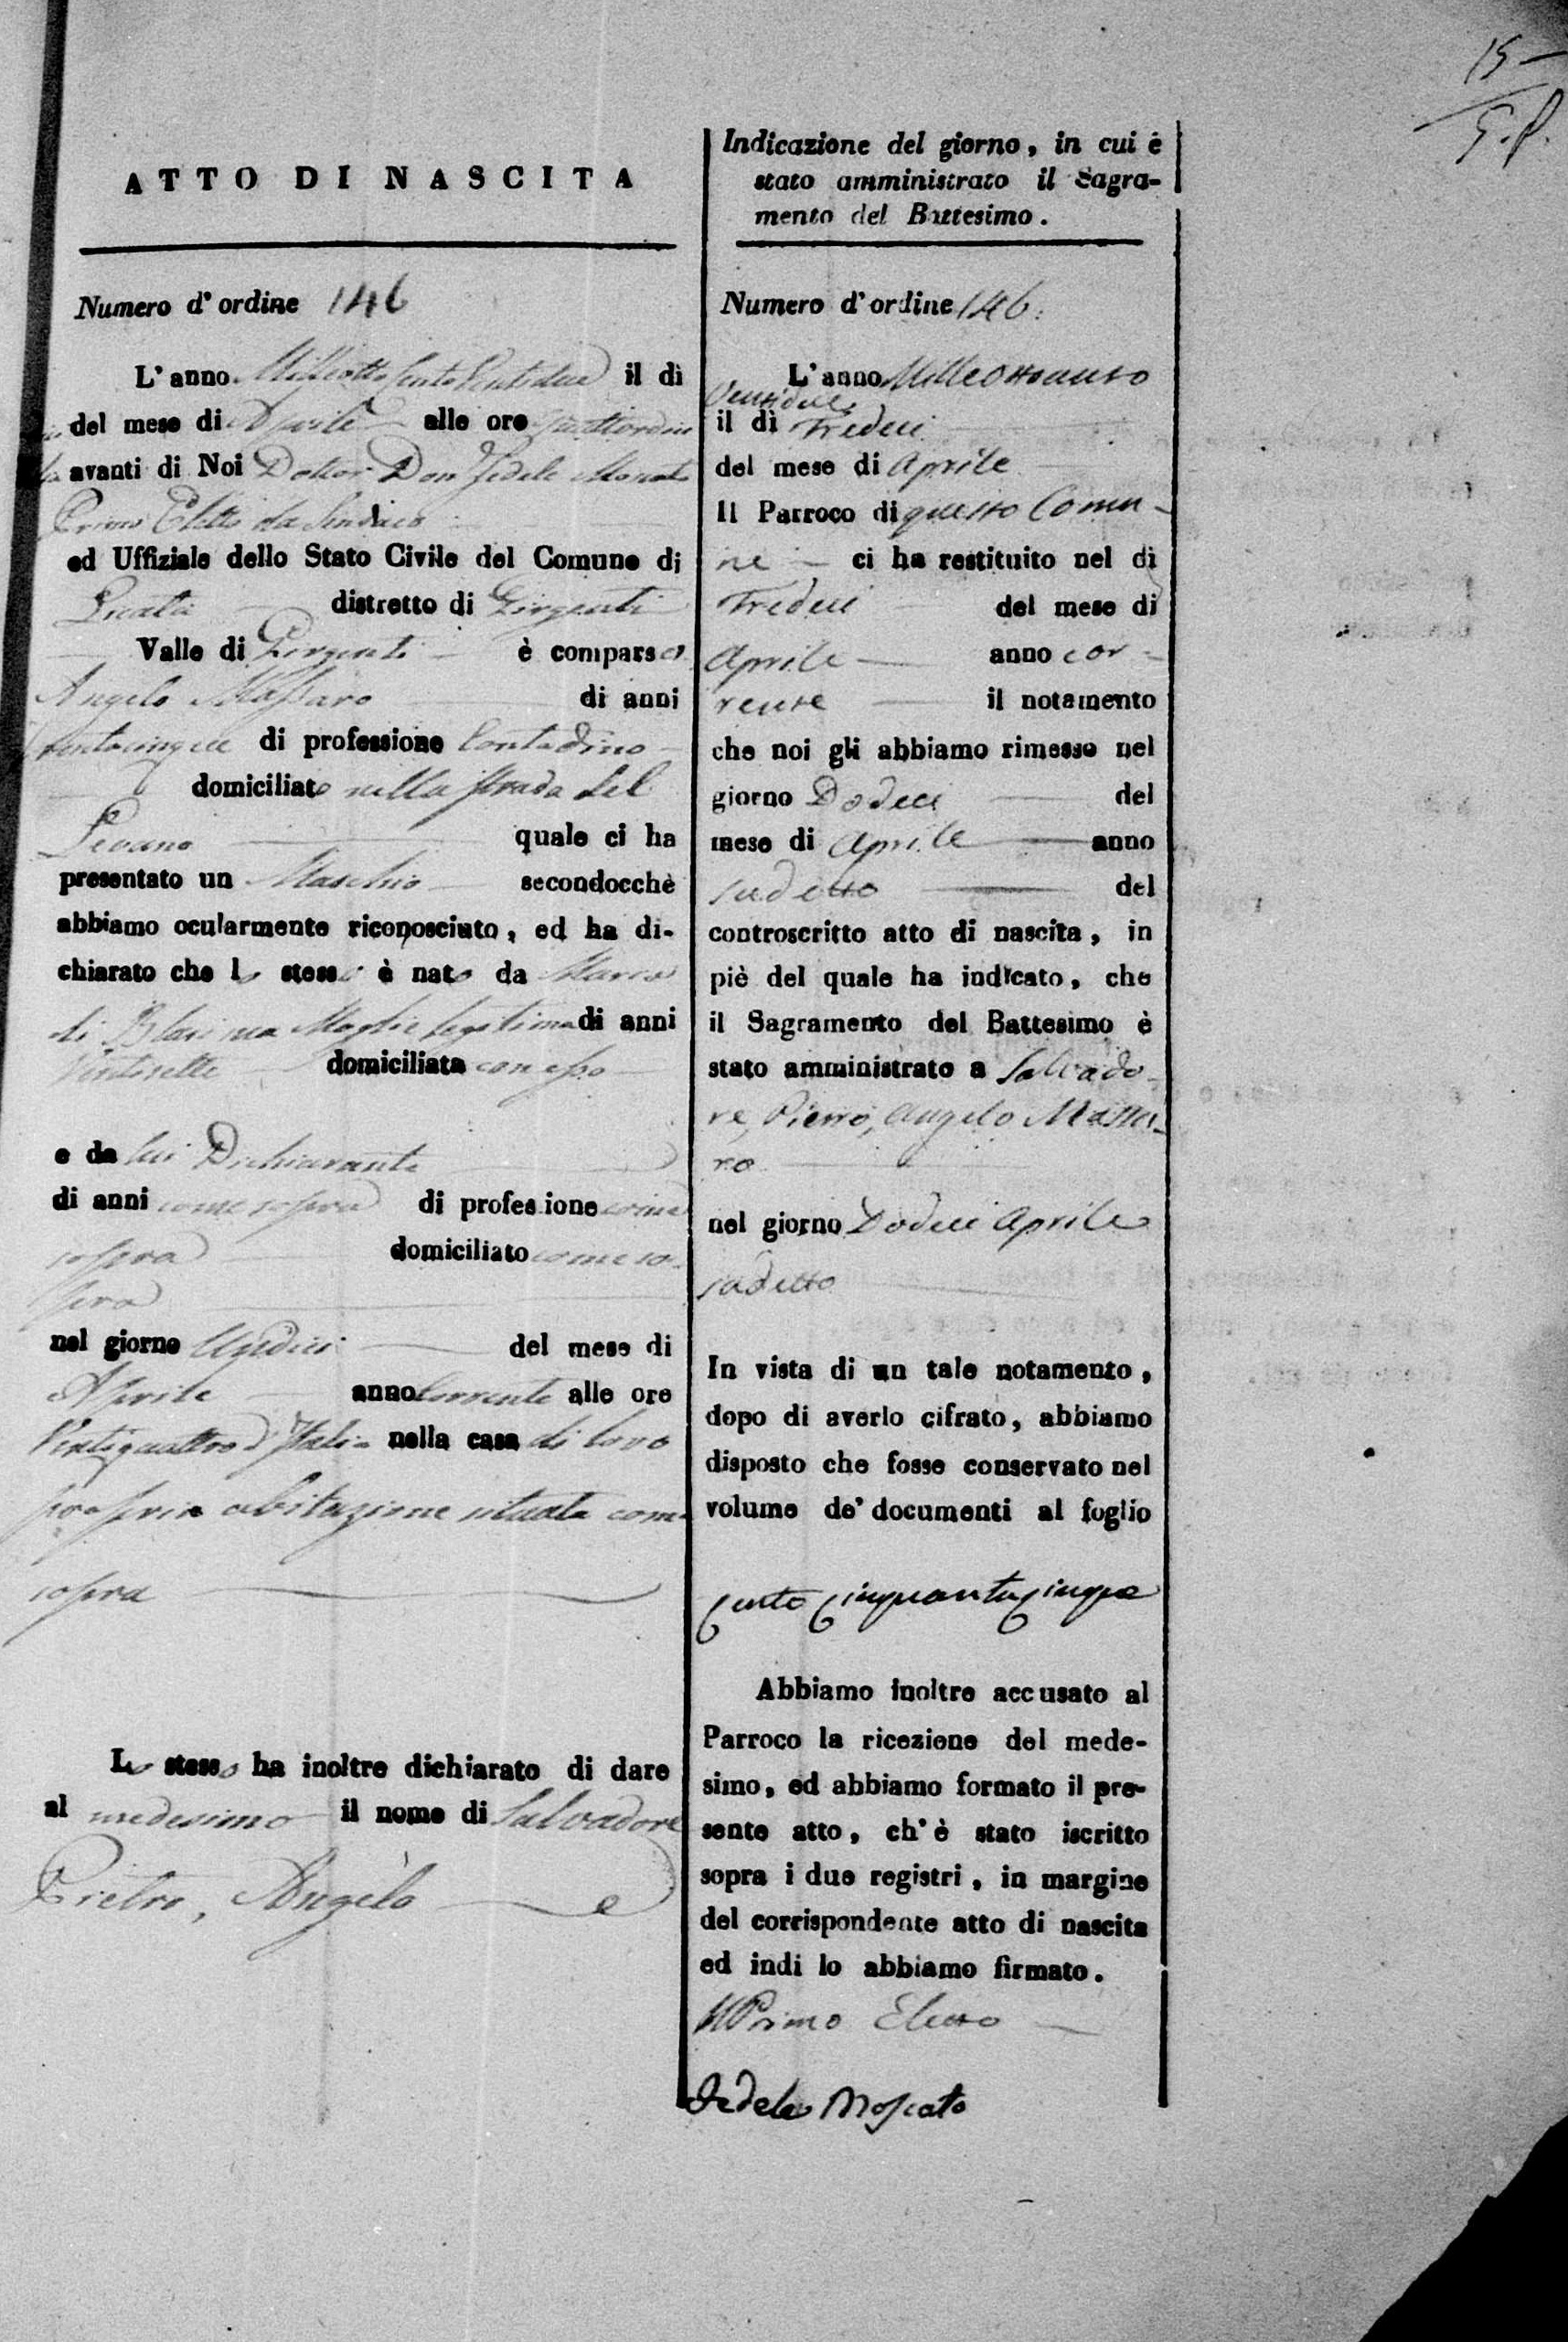 15
ATTO DI NASCITA
Numero d'ordine 146
L'anno Milleottocento Ventidue il dì
del mese di Aprile alle ore quattordici
avanti di Noi Dottor Don Fedele Moscato
Primo Eletto da Sindaco
ed Uffiziale dello Stato Civile del Comune di
Licata distretto di Girgenti
Valle di Girgenti è comparso
Angelo Massaro di anni
trentacinque di professione Contadino
domiciliato nella strada del
quale ci ha
presentato un Maschio secondocchè
abbiamo ocularmente riconosciuto, ed ha di-
chiarato che lo stesso è nato da
di Blasi sua Moglie legitima di anni
Ventisette domiciliata con esso
e da lui Dichiarante
di anni come sopra di professione come
sopra domiciliato come so-
pra
nel giorno Undici del mese di
Aprile anno corrente alle ore
Ventiquattro d'Italia nella casa di loro
propria abitazione situata come
sopra
Lo stesso ha inoltre dichiarato di dare
al medesimo il nome di Salvadore
Pietro, Angelo
Indicazione del giorno, in cui è
stato amministrato il Sagra-
mento del Battesimo.
Numero d'ordine 146.
L'anno Milleottocento
Ventidue
il dì Tredeci
del mese di Aprile
Il Parroco di questo Comu-
ne ci ha restituito nel dì
Tredeci del mese di
Aprile anno cor-
rente il notamento
che noi gli abbiamo rimesso nel
giorno Dodeci del
mese di Aprile anno
sudetto del
controscritto atto di nascita, in
piè del quale ha indicato, che
il Sagramento del Battesimo è
stato amministrato a Salvado-
re, Pietro, Angelo Massa-
ro
nel giorno Dodeci Aprile
sudetto
In vista di un tale notamento,
dopo di averlo cifrato, abbiamo
disposto che fosse conservato nel
volume de' documenti al foglio
Cento Cinquanta Cinque
Abbiamo inoltre accusato al
Parroco la ricezione del mede-
simo, ed abbiamo formato il pre-
sente atto, ch'è stato iscritto
sopra i due registri, in margine
del corrispondente atto di nascita
ed indi lo abbiamo firmato.
Il Primo Eletto
Fedele Moscato